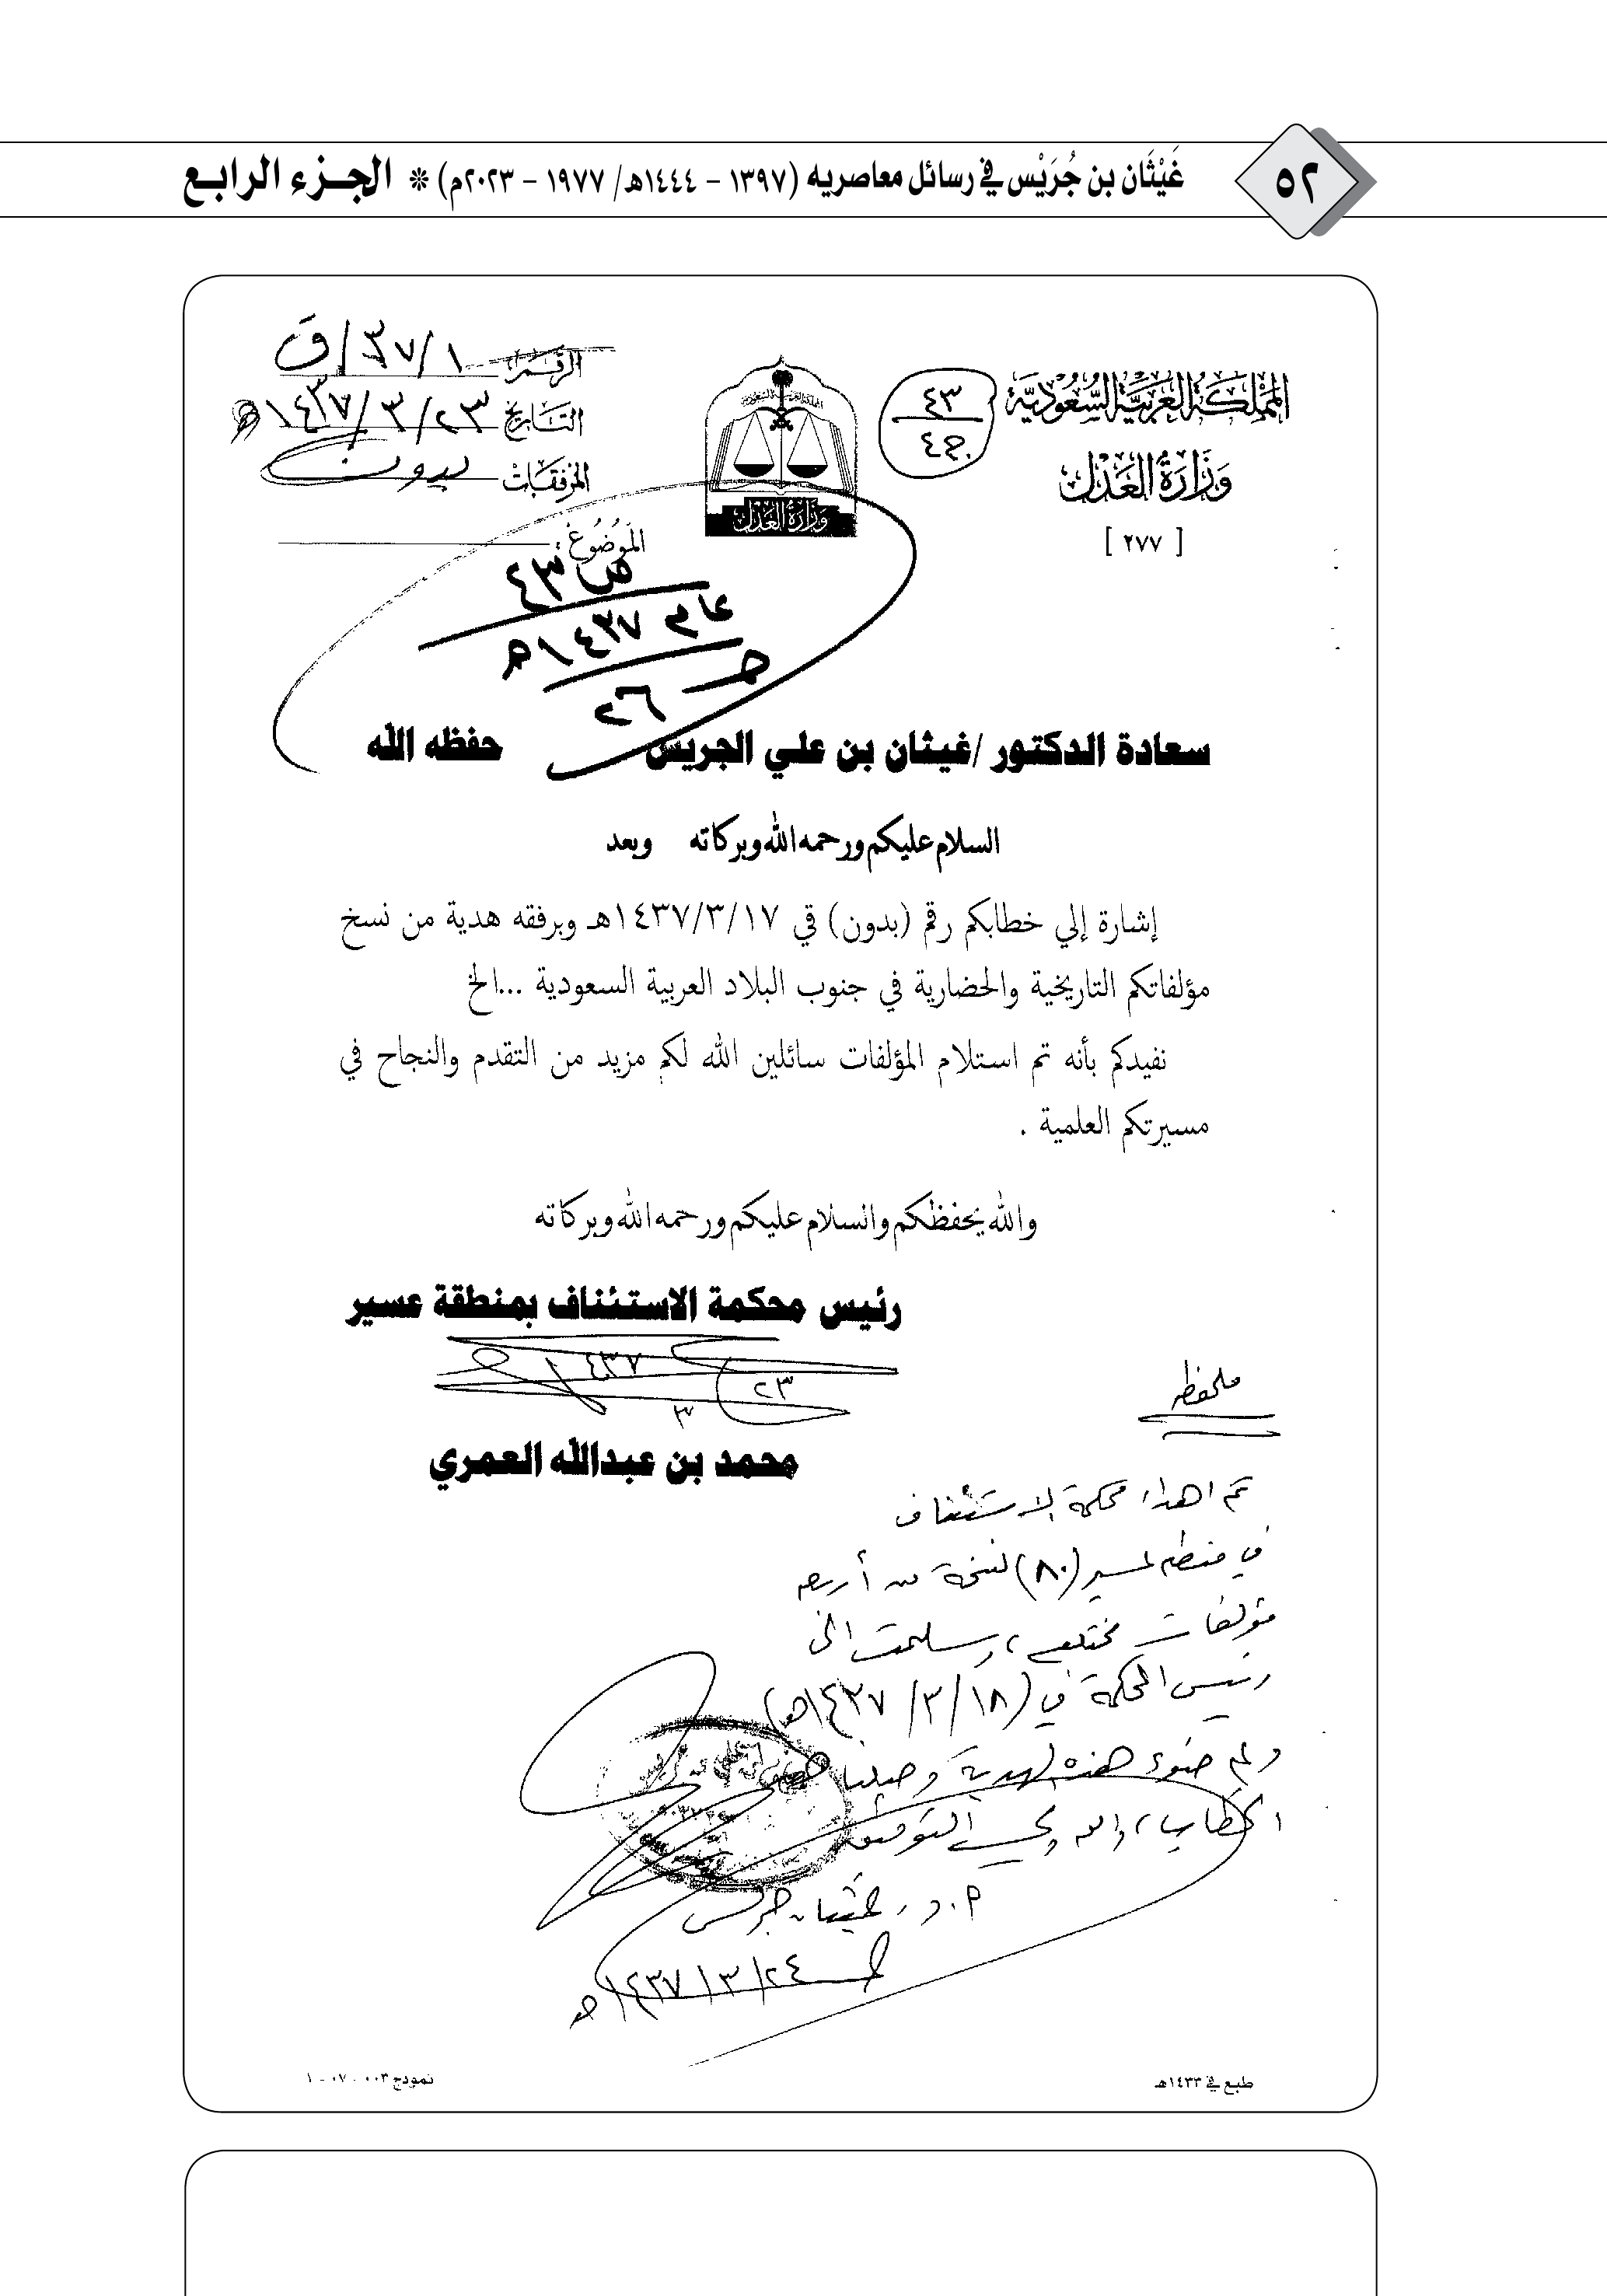 ٥٢
غَيْثَان بن جُرَيْس في رسائل معاصريه (١٣٩٧ - ١٤٤٤هـ/ ١٩٧٧ - ٢٠٢٣م) * الجزء الرابع
المملكة العربية السعودية
وزارة العدل
[ ٢٧٧ ]
٤٣
وزارة العدل
الرقم ٣٧/١/ق
التاريخ ١٤٣٧/٣/٢٣هـ
المرفقات بدون
الموضوع :
ص ٤٣
عام ١٤٣٧هـ
٢٦
سعادة الدكتور /غيثان بن علي الجريس حفظه الله
السلام عليكم ورحمه الله وبركاته وبعد
إشارة إلي خطابكم رقم (بدون) قي ١٤٣٧/٣/١٧هـ وبرفقه هدية من نسخ
مؤلفاتكم التاريخية والحضارية في جنوب البلاد العربية السعودية ...الخ
نفيدكم بأنه تم استلام المؤلفات سائلين الله لكم مزيد من التقدم والنجاح في
مسيرتكم العلمية .
والله يحفظكم والسلام عليكم ورحمه الله وبركاته
رئيس محكمة الاستئناف بمنطقة عسير
١٤٣٧
٢٣
٣
محمد بن عبدالله العمري
ملحظه
تم اهداء محكمة الاستئناف
في منطقه عسير (٨٠) نسخة من أربعه
مؤلفات مختلفه، وسلمت الى
رئيس المحكمة في (١٤٣٧/٣/١٨هـ)
وعلى ضوء هذه الهدية وصلنا هذا
الخطاب، والله ولي التوفيق
أ.د. غيثان جريس
١٤٣٧/٣/٢٤هـ
طبع في ١٤٣٣هـ
نموذج ٠٠٣-٠٧-١